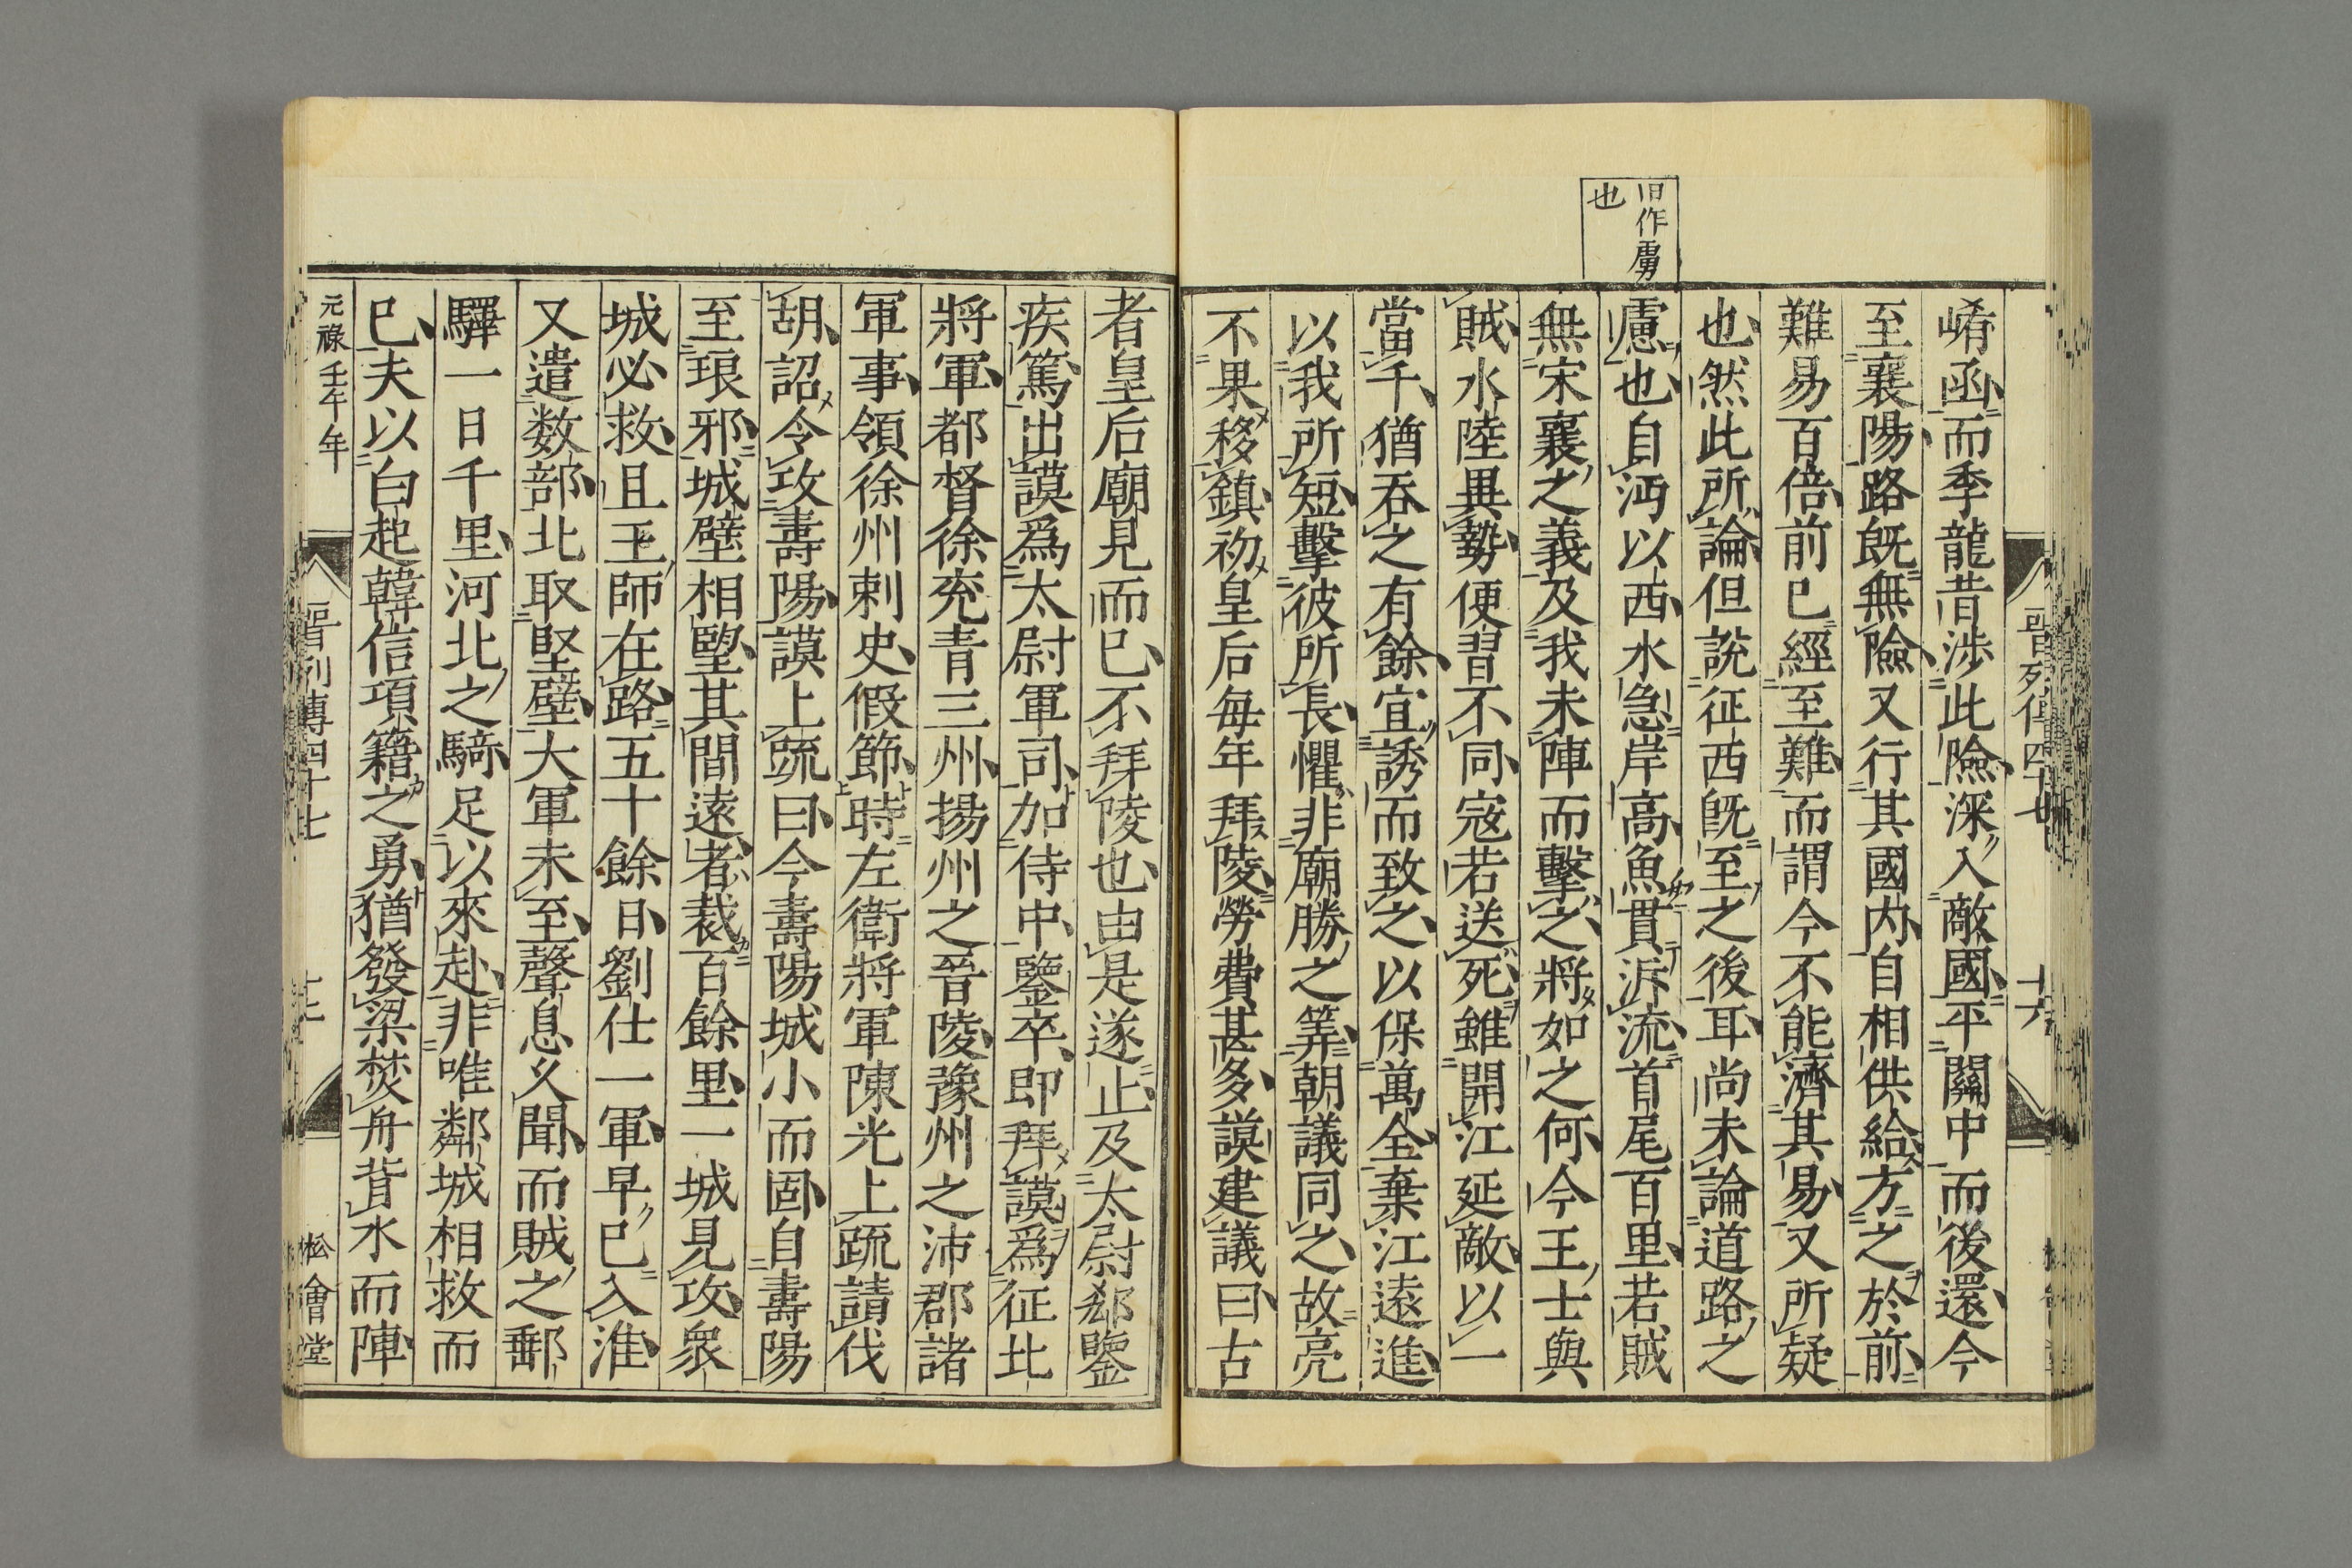 旧作虜
也
崤函而季龍昔渉此險深入敵國平關中而後還今
至襄陽路旣無險又行其國内自相供給方之於前
難易百倍前已經至難而謂今不能濟其易又所疑
也然此所論但說征西旣至之後耳尚未論道路之
慮也自沔以西水急岸高魚貫泝流首尾百里若賊
無宋襄之義及我未陣而擊之將如之何今王士與
賊水陸異勢便習不同寇若送死雖開江延敵以一
當千猶吞之有餘宜誘而致之以保萬全棄江遠進
以我所短擊彼所長懼非廟勝之筭朝議同之故亮
不果移鎮初皇后毎年拜陵勞費甚多謨建議曰古
者皇后廟見而已不拜陵也由是遂止及太尉郗鑒
疾篤出謨爲太尉軍司加侍中鑒卒即拜謨爲征北
將軍都督徐兗青三州揚州之晉陵豫州之沛郡諸
軍事領徐州刺史假節時左衛將軍陳光上疏請伐
胡詔令攻壽陽謨上疏曰今壽陽城小而固自壽陽
至琅邪城壁相望其間遠者裁百餘里一城見攻衆
城必救且王師在路五十餘日劉仕一軍早已入淮
又遣数部北取堅壁大軍未至聲息久聞而賊之郵
驛一日千里河北之騎足以來赴非唯鄰城相救而
已夫以白起韓信項籍之勇猶發梁焚舟背水而陣
元祿壬午年
晉列傳四十七
松會堂